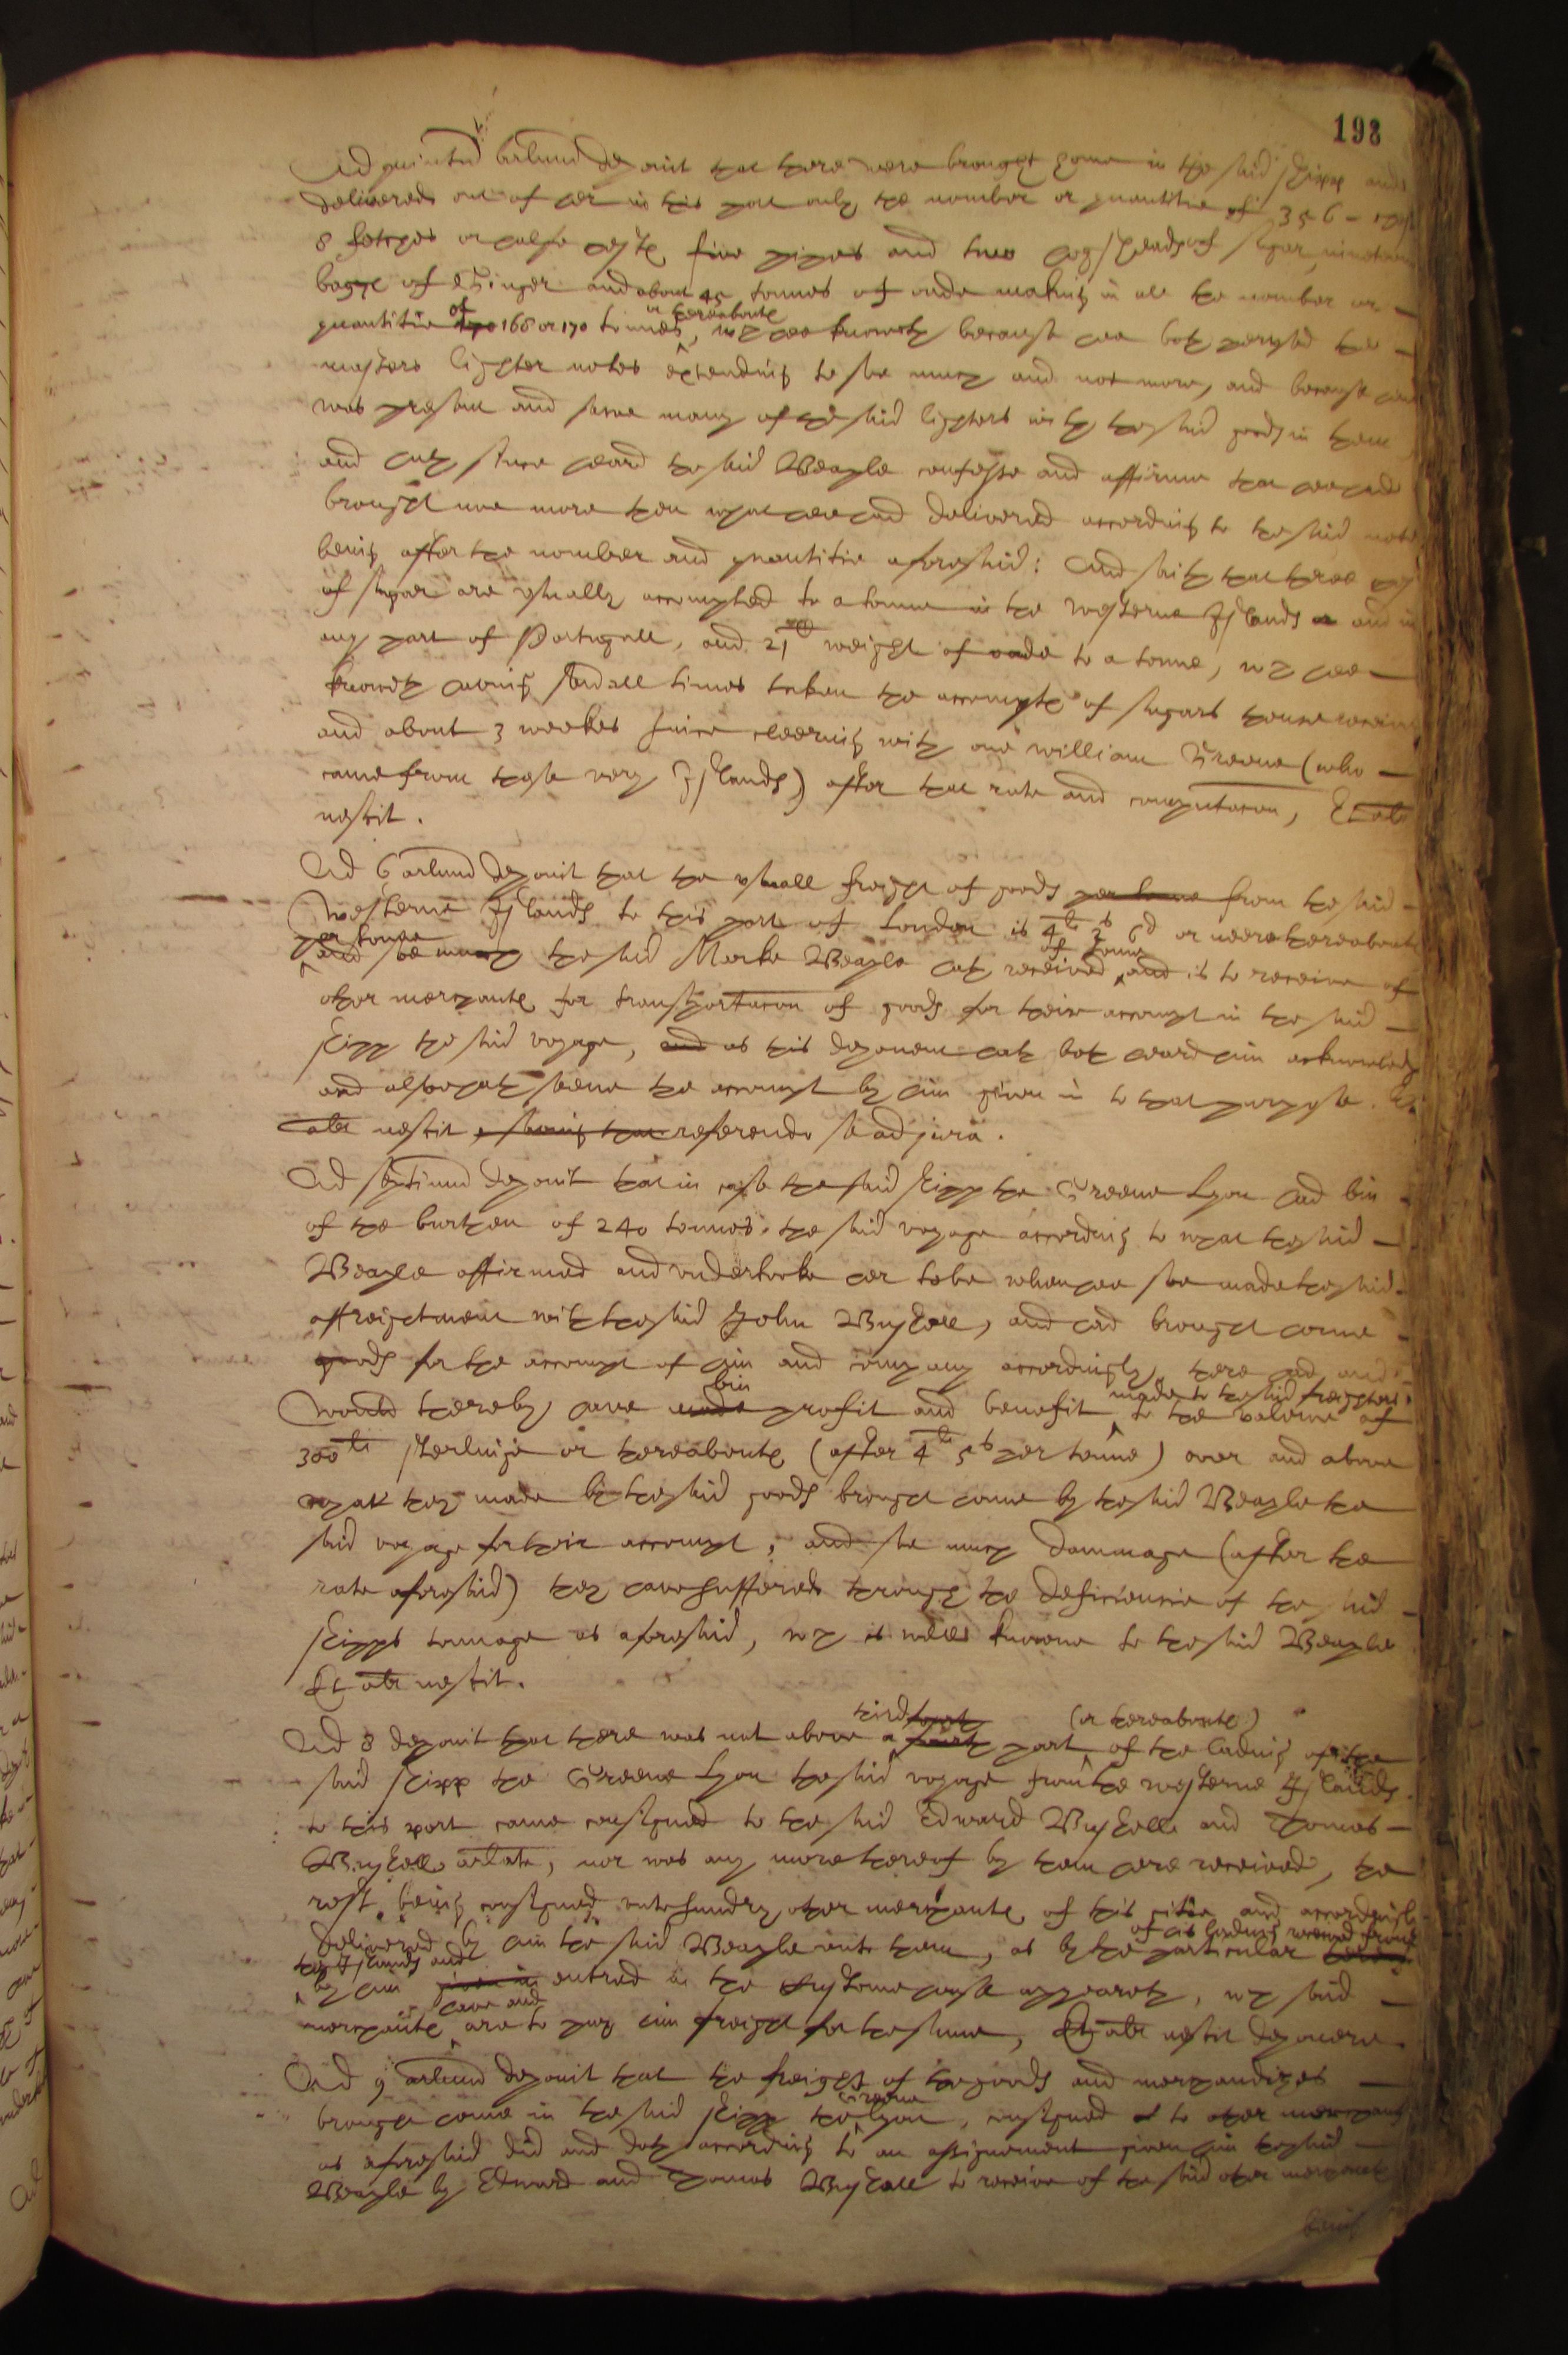 198
Ad quintum arlum deponit that there were brought home in the said shipp and
delivered out of her in this port only the number or quantitie of 356 - chests
8 fetches or halfe chests, five pipes and two hogsheads of sugar, nineteen
baggs of Ginger and about 45 tonnes of oade making in all the number or -
quantitie of 168 or 170 tonnes, or thereabouts wch hee knoweth because hee both perused the -
masters lighter notes extending to soe much and not more, and because hee
was present and sawe many of the said lighters with the said goods in them
and hath since heard the said Beaple confesse and affirme that hee had
brought noe more then what hee had delivered according to the said note
being after the number and quantitie aforesaid: And saith that three chests
of sugar are usually accompted to a tonne in the westerne Islands and in
any part of Portugall, and 21 weight of oade to a tonne, wch hee -
knoweth having severall times taken the accompts of sugars thence
and about 3 weekes since cleering with one william Greene (who -
came from those very Islands) after that rate and computacon, Et alr
nescit.
Ad 6 arlum deponit that the usuall freight of goods per tonne from the said -
westerne Islands to this port of London is 4li 2s 6d or neere thereabouts
per tonne and soe much the said Marke Beaple hath received of some and is to receive of
other merchants for transportacon of goods for their accompt in the said -
shipp the said voyage, and as this deponent hath both heard him acknowledge
and also hath seene the accompt by him given in to that purpose. Et
alr nescit, saving that referendo se ad jura.
Ad septimum deponit that in case the said shipp the Greene Lyon had bin -
of the burthen of 240 tonnes. the said voyage according to what the said -
Beaple affirmed and undertooke her to be when hee soe made the said -
affreightment with the said John Bushell, and had brought home -
goods for the accompt of him and company accordingly, there had and
would thereby have made bin profit and benefit made to the said freighters to the valewe of
300li sterling or thereabouts (after 4li 5s per tonne) over and above
what they made by the said goods brought home by the said Beaple the
said voyage for their accompt, and soe much dammage (after the
rate aforesaid) they have suffered through the deficiencie of the said -
shipps tonnage as aforesaid, wch is well knowne to the said Beaple
Et alr nescit.
Ad 8 deponit that there was not above a third fourth part (or thereabouts) of the lading of the
said shipp the Greene Lyon the said voyage from the westerne Islands
to this port came consigned to the said Edward Bushell and Thomas -
Bushell arlate, nor was any more thereof by them here received, the
rest being consigned unto sundry other merchants of this citie and accordingly
delivered by him the said Beaple unto them, as by the particular of his lading received from
the Islands and by him given in entred in the Custome house appeareth, wch said -
merchants have and are to pay him freight for the same, Et alr nescit deponere.
Ad 9 arlum deponit that the freight of the goods and merchandizes -
brought home in the said shipp the Greene Lyon, consigned to other merchants
as aforesaid did and doth according to an assignement given him the said -
Beaple by Edward and Thomas Bushell to receive of the said other merchants
being